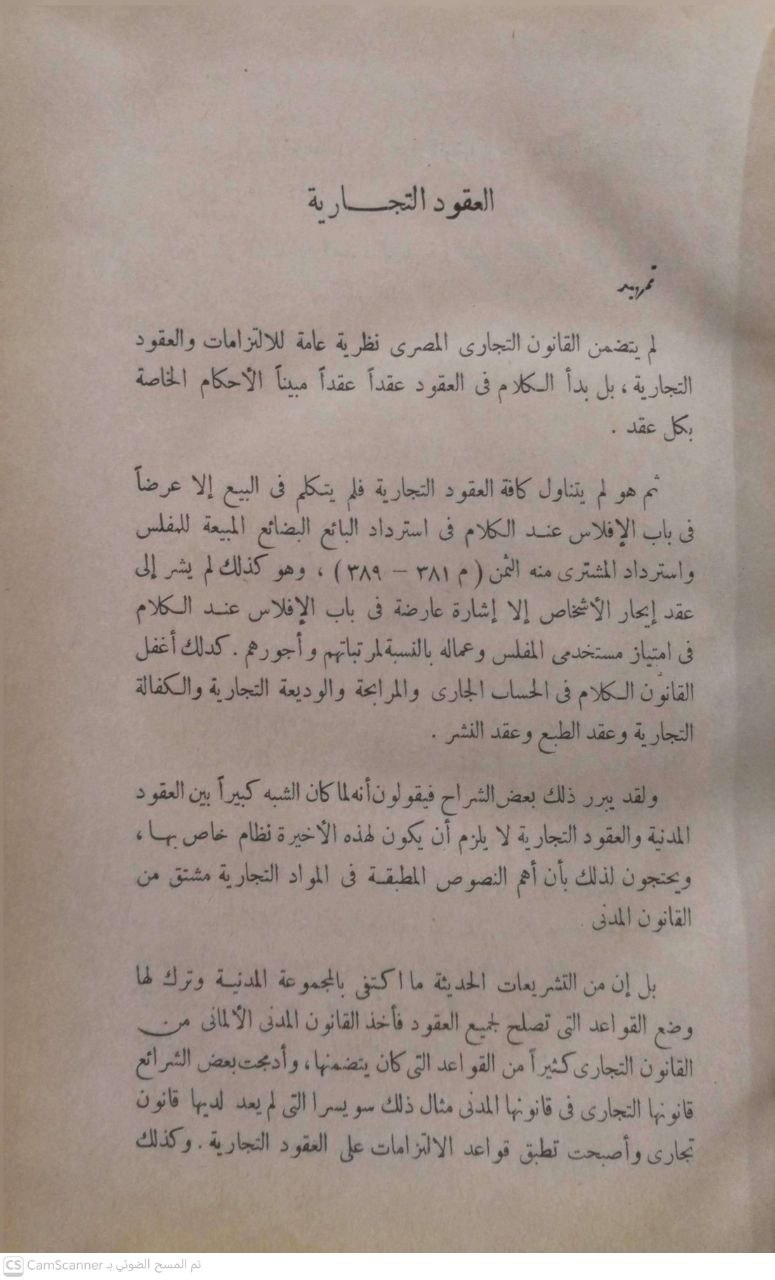 العقود التجـــارية
تمهيد
لم يتضمن القانون التجارى المصرى نظرية عامة للالتزامات والعقود
التجارية ، بل بدأ الكلام فى العقود عقداً عقداً مبيناً الأحكام الخاصة
بكل عقد .
ثم هو لم يتناول كافة العقود التجارية فلم يتكلم فى البيع إلا عرضاً
فى باب الإفلاس عند الكلام فى استرداد البائع البضائع المبيعة للمفلس
واسترداد المشترى منه الثمن ( م ٣٨١ – ٣٨٩ ) ، وهو كذلك لم يشر إلى
عقد إيجار الأشخاص إلا إشارة عارضة فى باب الإفلاس عند الكلام
فى امتياز مستخدمى المفلس وعماله بالنسبة لمرتباتهم وأجورهم . كدلك أغفل
القانون الكلام فى الحساب الجارى والمرابحة والوديعة التجارية والكفالة
التجارية وعقد الطبع وعقد النشر .
ولقد يبرر ذلك بعض الشراح فيقولون أنه لما كان الشبه كبيراً بين العقود
المدنية والعقود التجارية لا يلزم أن يكون لهذه الأخيرة نظام خاص بها ،
ويحتجون لذلك بأن أهم النصوص المطبقة فى المواد التجارية مشتق من
القانون المدنى .
بل إن من التشريعات الحديثة ما اكتفى بالمجموعة المدنية وترك لها
وضع القواعد التى تصلح لجميع العقود فأخذ القانون المدنى الألمانى من
القانون التجارى كثيراً من القواعد التى كان يتضمنها ، وأدمجت بعض الشرائع
قانونها التجارى فى قانونها المدنى مثال ذلك سويسرا التى لم يعد لديها قانون
تجارى وأصبحت تطبق قواعد الالتزامات على العقود التجارية . وكذلك
CS CamScanner تم المسح الضوئي بـ